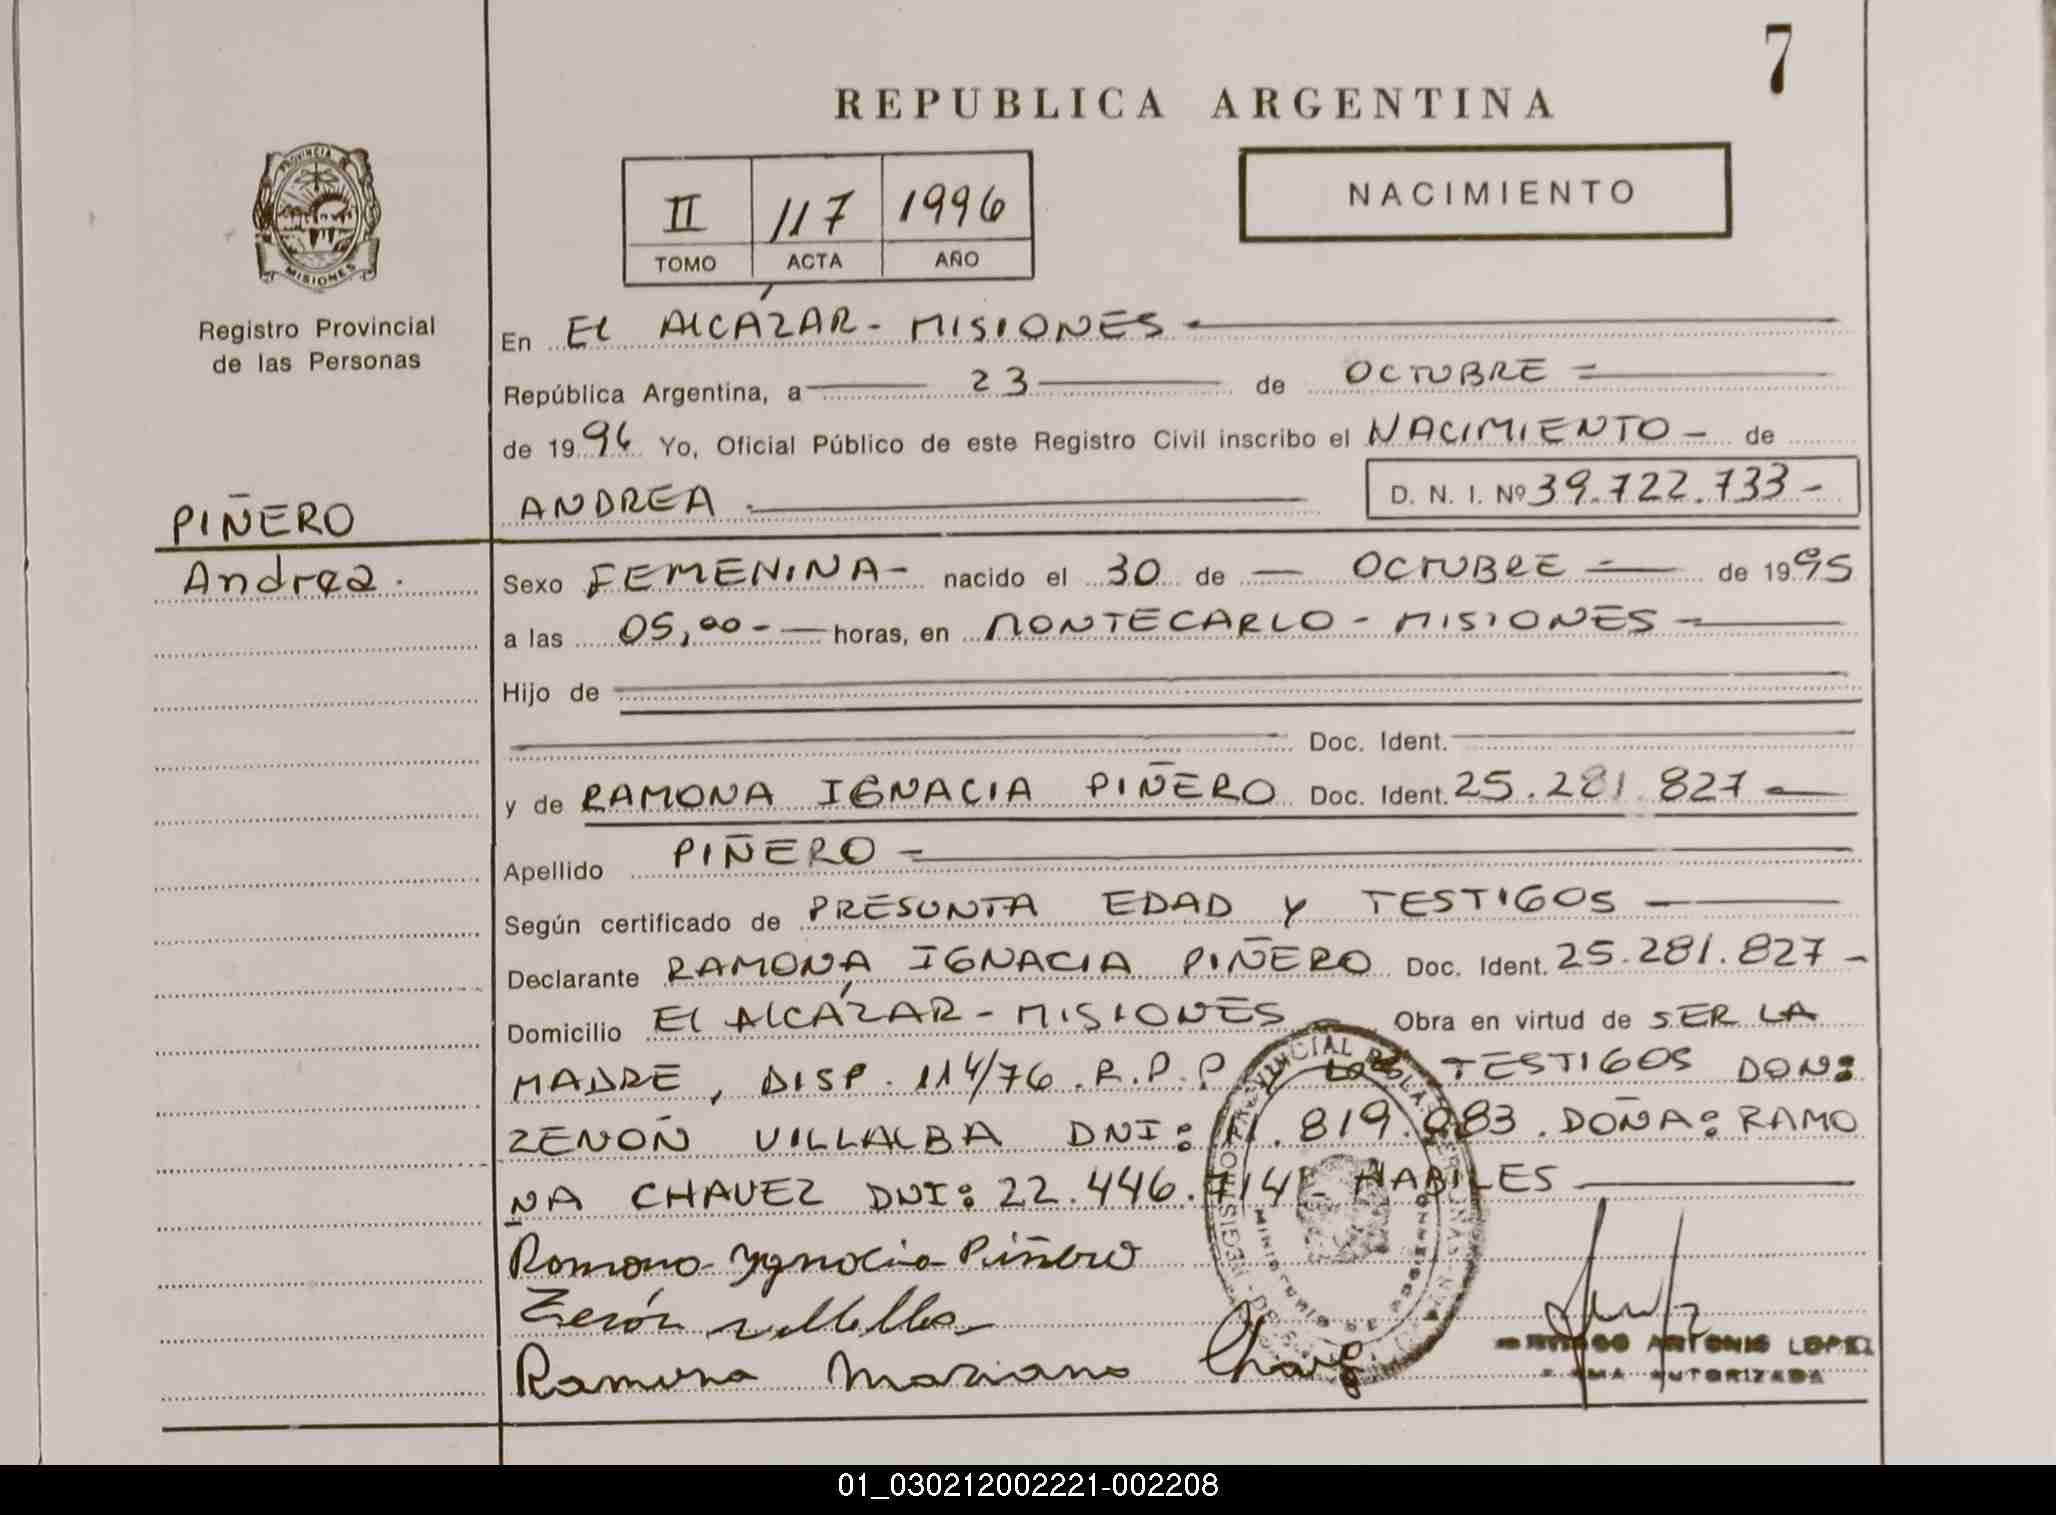 7
REPUBLICA ARGENTINA
II 117 1996
TOMO ACTA AÑO
NACIMIENTO
PROVINCIA DE
MISIONES
Registro Provincial
de las Personas
En EL ALCÁZAR - MISIONES
República Argentina, a 23 de OCTUBRE
de 1996 Yo, Oficial Público de este Registro Civil inscribo el NACIMIENTO - de
ANDREA D. N. I. Nº 39.722.733 -
PIÑERO
Andrea.
Sexo FEMENINA - nacido el 30 de OCTUBRE de 1995
a las 05,00 - horas, en MONTECARLO - MISIONES
Hijo de
Doc. Ident.
y de RAMONA IGNACIA PIÑERO Doc. Ident. 25.281.827
Apellido PIÑERO
Según certificado de PRESUNTA EDAD Y TESTIGOS
Declarante RAMONA IGNACIA PIÑERO Doc. Ident. 25.281.827 -
Domicilio EL ALCÁZAR - MISIONES Obra en virtud de SER LA
MADRE, DISP. 114/76. R.P.P. Y LOS TESTIGOS DON:
ZENON VILLALBA DNI: 819.083. DOÑA: RAMO
NA CHAVEZ DNI: 22.446.714 - HABILES
Ramona Ygnacia Piñero
Zenón Villalba
Ramona Mariana
ANTONIO LOPEZ
FIRMA AUTORIZADA
01_030212002221-002208